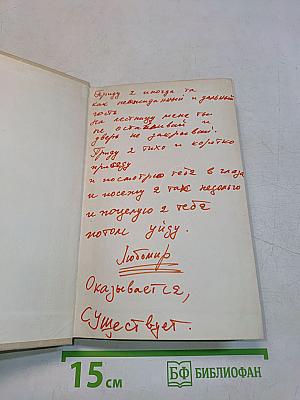 Приду я иногда та
как неожиданный и дальний
гость
на лестницу меня ты
не останавливай и
дверь не закрывай.
Приду я тихо и коротко
приведу
и посмотрю тебе в глаза
и посежу я так недолго
и поцелую я тебя
потом уйду.
Любомир
Оказывается,
Существует.
15 см
БФ БИБЛИОФАН